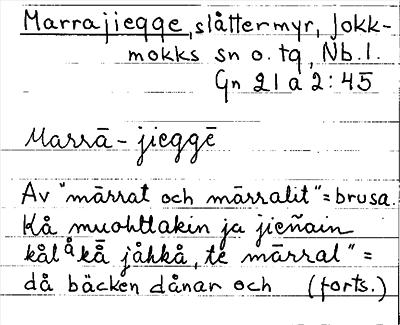 Marrajiegge, slåttermyr, Jokk-
mokks sn o. tg, Nb. l.
Gn 21 a 2:45
Marrā - jieggē
Av "mārrat och mārralit" = brusa.
Kå muohttakin ja jieñain
kålåkā jåhkå, te mārral" =
då bäcken dånar och (forts.)